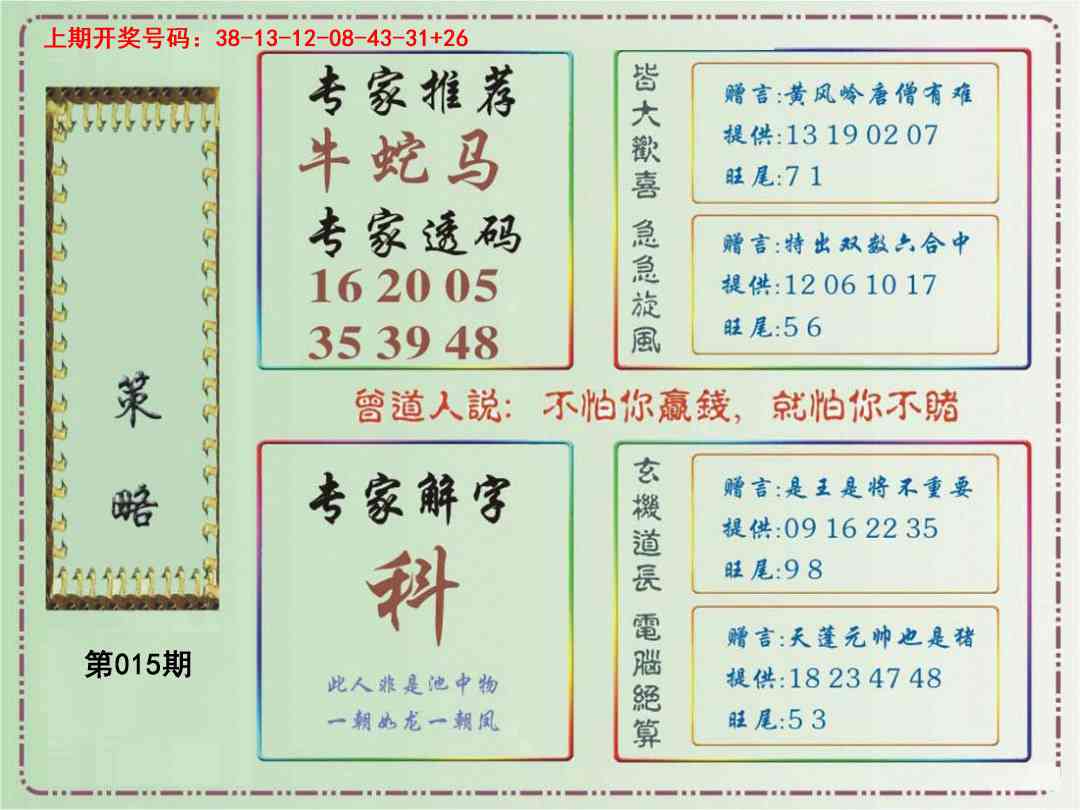 上期开奖号码：38-13-12-08-43-31+26
策略
第015期
专家推荐
牛蛇马
专家透码
16 20 05
35 39 48
皆大歡喜
赠言:黄风岭唐僧有难
提供:13 19 02 07
旺尾:7 1
急急旋風
赠言:特出双数六合中
提供:12 06 10 17
旺尾:5 6
曾道人説：不怕你贏錢，就怕你不賭
专家解字
科
此人非是池中物
一朝如龙一朝凤
玄機道長
赠言:是王是将不重要
提供:09 16 22 35
旺尾:9 8
電腦絕算
赠言:天蓬元帅也是猪
提供:18 23 47 48
旺尾:5 3